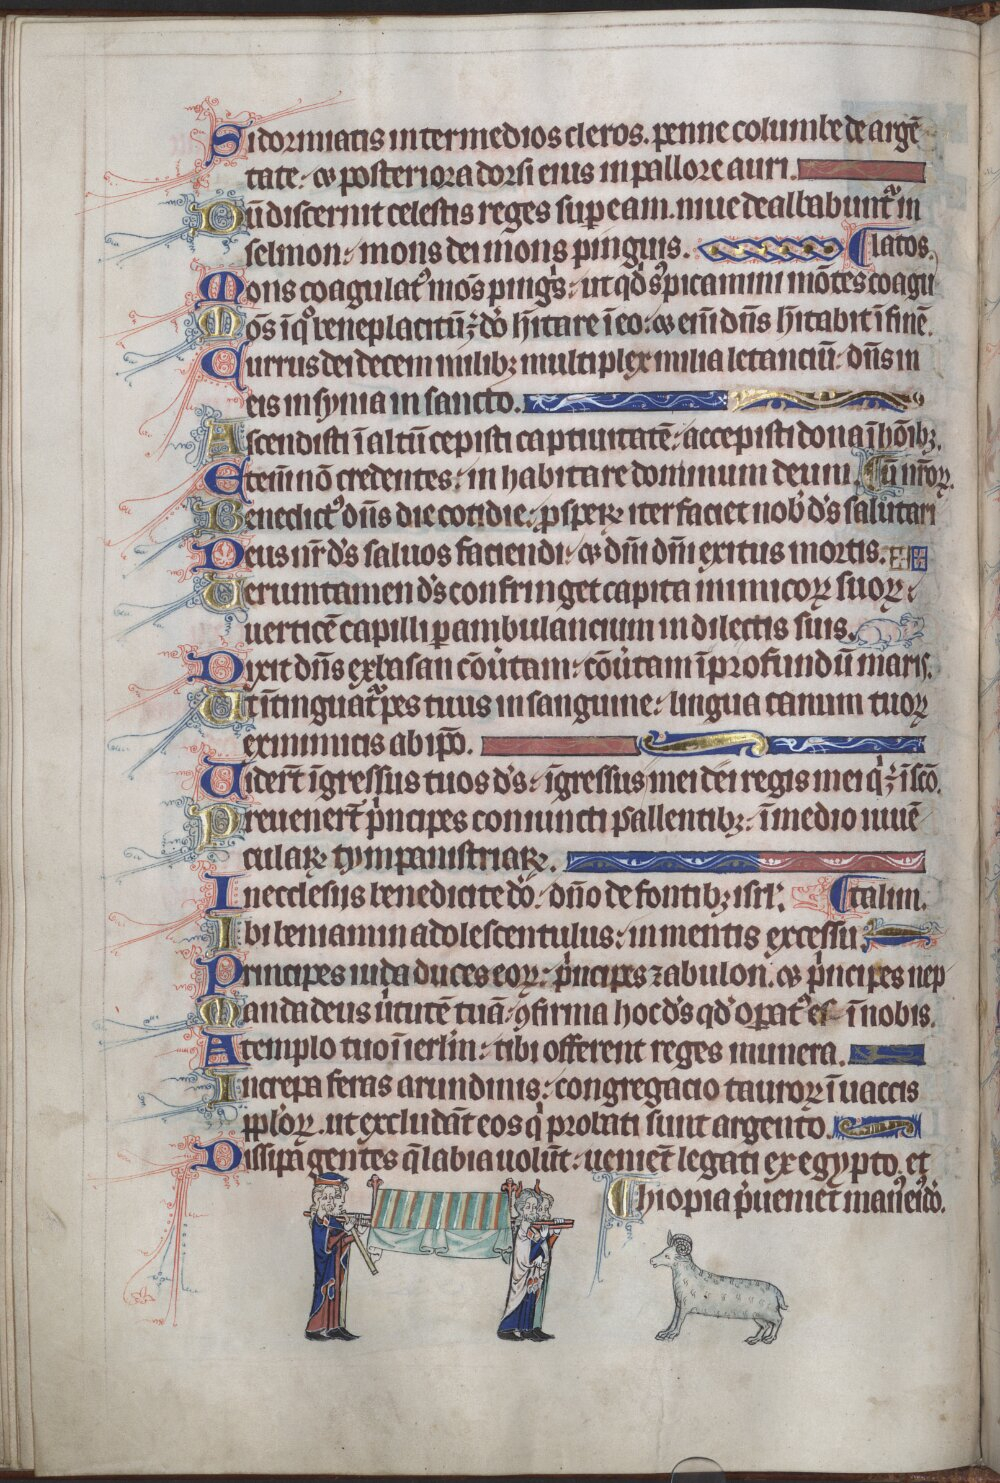 Si dormiatis inter medios cleros. penne columbe de argē
tate: ⁊ posteriora dorsi eius in pallore auri.
Dū discernit celestis reges sup eam. niue dealbabunt̃ in
selmon: mons dei mons pinguis.
Mons coagulat᷒ mōs pingˀs: ut qͥd sˀpicamini mōtes coagu
latos.
Mōs ī qͦ beneplacitū ⁊ dō hˀitare ī eo: ⁊ enī dn̄s hˀitabit ī finē.
Currus dei decem milibꝫ multiplex milia letanciū: dn̄s in
eis in syna in sancto.
Ascendisti ī altū cepisti captiuitatē: accepisti dona ī hōībꝫ.
Etenī nō credentes: in habitare dominum deum.
Benedictˀ dn̄s die cotidie: ꝓsperꝝ iter faciet nobˀ ds̄ salutari
ū nr̄oꝝ.
Deus nr̄ ds̄ saluos faciendi: ⁊ dn̄i dn̄i exitus mortis.
Veruntamen ds̄ confringet capita inimicoꝝ suoꝝ:
uerticē capilli ꝑambulancium in delictis suis.
Dixit dn̄s ex basan cōuˀtam: cōuˀtam ī profundū maris.
Ut ītinguat̃ pes tuus in sanguine: lingua canum tuoꝝ
ex inimicis ab ip̄o.
Viderˀt īgressus tuos ds̄: īgressus mei dei regis mei qͥ ē ī sc̄o.
Preuenerˀt pͥncipes coniuncti psallentibꝫ: ī medio iuuē
cularꝝ tympanistriarꝝ.
In ecclesiis benedicite dō: dn̄o de fontibꝫ isrl.
Ibi beniamin adolescentulus: in mentis excessu.
Principes iuda duces eoꝝ: pͥncipes zabulon. ⁊ pͥncipes nep
talim.
Manda deus uˀtutē tuā: ꝯfirma hoc ds̄ qd̄ oꝑatˀ es ī nobis.
A templo tuo ī ierlˀm: tibi offerent reges munera.
Increpa feras arundinis: congregacio tauroꝝ ī uaccis
ppl̄oꝝ. ut excludāt eos qͥ probati sunt argento.
Dissipa gentes q̄ bella uolūt: uenient legati ex egypto. et
Ethiopia pͥueniet manˀ eiˀ dō.